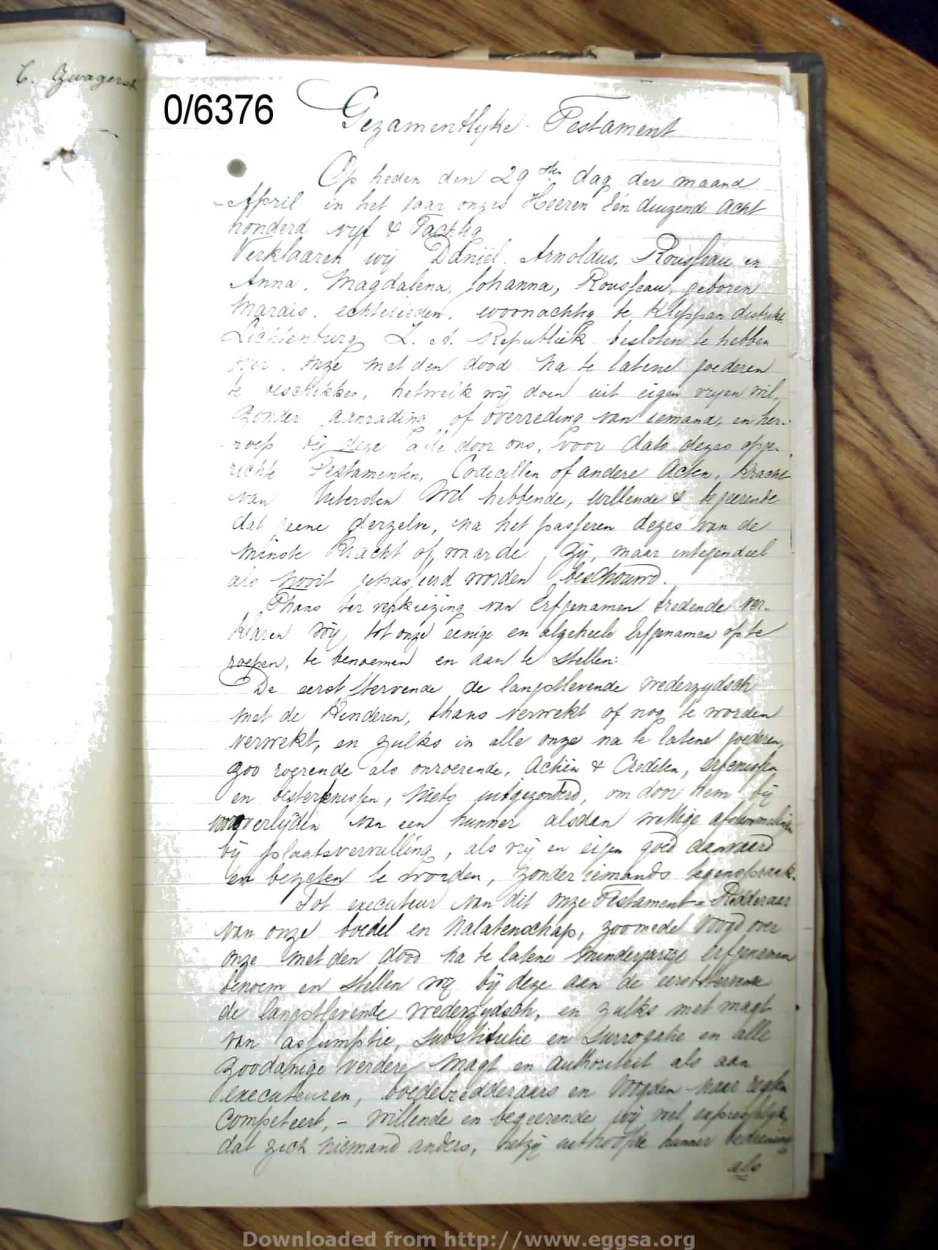 C. Zwagerst
0/6376
Gezamentlyke Testament
Op heden den 29sten dag der maand
April in het Jaar onzes Heeren Een duizend Acht
honderd vyf & Tachtig
Verklaaren wij Daniel Arnoldus Rousseau en
Anna Magdalena Johanna, Rousseau, geboren
Marais, echtelieden, woonachtig te Klippan distrikt
Lichtenburg Z. A. Republiek besloten te hebben
over onze met den dood na te latene goederen
te beschikken, hetwelk wij doen uit eigen vrijen wil,
zonder aanrading of overreding van iemand, en her-
roep bij deze alle door ons, voor dato dezes opge-
richte Testamenten, Codicillen of andere Acten, kracht
van Uitersten Wil hebbende, willende & begeerende
dat geene derzelve, na het passeren dezes van de
minste kracht of waarde zij, maar integendeel
als nooit gepasseerd worden beschouwd.
Thans ter verkiezing van Erfgenamen tredende ver-
klaren wij, tot onze eenige en algeheele Erfgenamen op te
roepen, te benoemen en aan te stellen:
De eerst stervende de langstlevende wederzydsch
met de Kinderen, thans verwekt of nog te worden
verwekt, en zulks in alle onze na te latene goederen,
zoo roerende als onroerende, Actien & Crediten, erfenissen
en besterfenissen, niets uitgezonderd, om door hem bij
vooroverlijden van een hunner alsdan wettige afstammelingen
bij plaatsvervulling, als vrij en eigen goed aanvaard
en bezeten te worden, zonder iemands tegenspraak.
Tot executeur van dit onze Testament Redderaar
van onze boedel en Nalatenschap, zoomede Voogd over
onze met den dood na te latene minderjarige Erfgenamen
benoem en stellen wij bij deze aan de eerststervende
de langstlevende wederzydsch, en zulks met magt
van assumptie, substitutie en surrogatie en alle
zoodanige verdere Magt en Authoriteit als aan
executeuren, boedelredderaars en Voogden naar regten
Competeert, - willende en begeerende wij wel expresselyk
dat zich niemand anders, hetzij uithoofde hunner bediening
als
Downloaded from http://www.eggsa.org